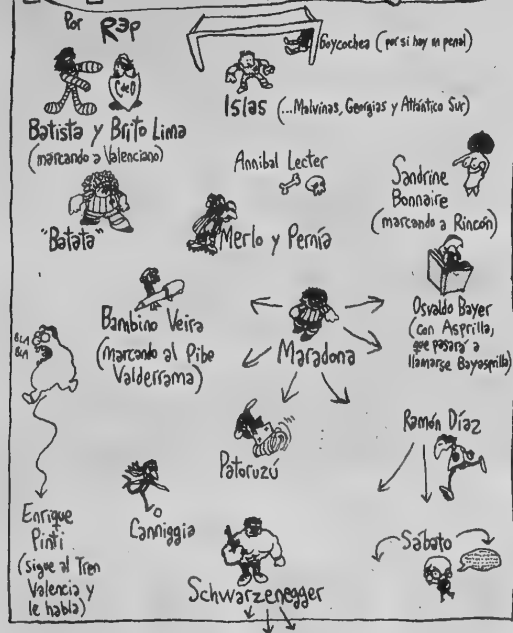 Por Rep
Goycochea (por si hay un penal)
C de D
Islas (...Malvinas, Georgias y Atlántico Sur)
Batista y Brito Lima
(marcando a Valenciano)
Annibal Lecter
Sandrine
Bonnaire
(marcando a Rincón)
"Batata"
Merlo y Pernía
Bambino Veira
(marcando al Pibe
Valderrama)
Maradona
Osvaldo Bayer
(con Asprilla,
que pasará a
llamarse Bayasprilla)
BLA
BLA
Patoruzú
Ramón Díaz
Enrique
Pinti
(sigue al Tren
Valencia y
le habla)
Canniggia
Sábato
Schwarzenegger